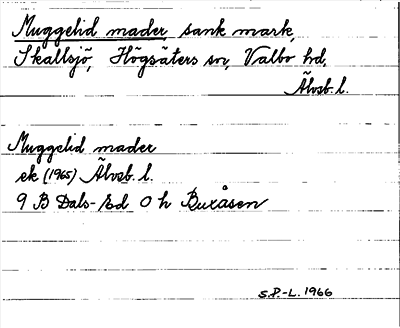 Muggelid mader, sank mark,
Skallsjö, Högsäters sn, Valbo hd,
Älvsb. l.
Muggelid mader
ek (1965) Älvsb. l.
9 B Dals-Ed 0 h Buxåsen
S.P.-L. 1966